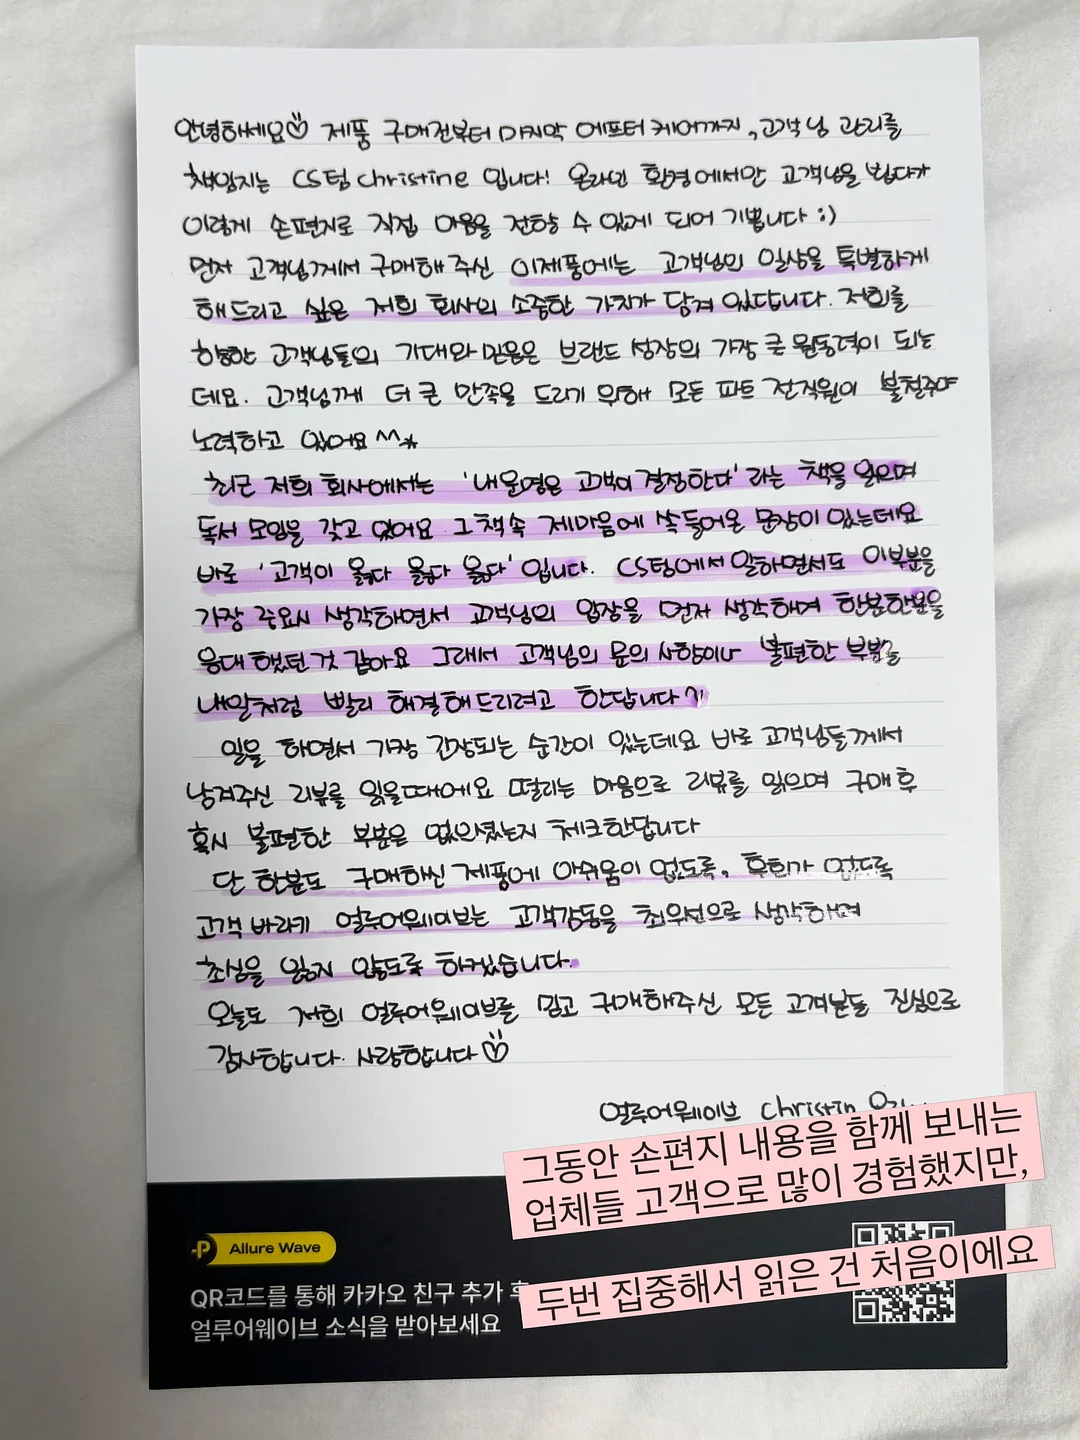 안녕하세요 제품 구매전부터 마지막 에프터 케어까지, 고객님 관리를
책임지는 CS팀 christine 입니다! 온라인 환경에서만 고객님을 뵙다가
이렇게 손편지로 직접 마음을 전할 수 있게 되어 기쁩니다 :)
먼저 고객님께서 구매해 주신 이제품에는 고객님의 일상을 특별하게
해드리고 싶은 저희 회사의 소중한 가치가 담겨 있답니다. 저희를
향한 고객님들의 기대와 믿음은 브랜드 성장의 가장 큰 원동력이 되는
데요. 고객님께 더 큰 만족을 드리기 위해 모든 파트 전직원이 불철주야
노력하고 있어요 ^^*
최근 저희 회사에서는 '내 운명은 고객이 결정한다' 라는 책을 읽으며
독서 모임을 갖고 있어요 그 책속 제마음에 쏙 들어온 문장이 있는데요
바로 '고객이 옳다 옳다 옳다' 입니다. CS팀에서 일하면서도 이부분을
가장 중요시 생각하면서 고객님의 입장을 먼저 생각하며 한분한분을
응대 했던것 같아요 그래서 고객님의 문의 사항이나 불편한 부분을
내일처럼 빨리 해결해 드리려고 한답니다
일을 하면서 가장 긴장되는 순간이 있는데요 바로 고객님들께서
남겨주신 리뷰를 읽을때에요 떨리는 마음으로 리뷰를 읽으며 구매 후
혹시 불편한 부분은 없으셨는지 체크한답니다
단 한분도 구매하신 제품에 아쉬움이 없도록, 후회가 없도록
고객 바라기 얼루어웨이브는 고객감동을 최우선으로 생각하며
초심을 잃지 않도록 하겠습니다.
오늘도 저희 얼루어웨이브를 믿고 구매해주신 모든 고객분들 진심으로
감사합니다. 사랑합니다
얼루어웨이브 christin
그동안 손편지 내용을 함께 보내는
업체들 고객으로 많이 경험했지만,
두번 집중해서 읽은 건 처음이에요
P Allure Wave
QR코드를 통해 카카오 친구 추가 후
얼루어웨이브 소식을 받아보세요